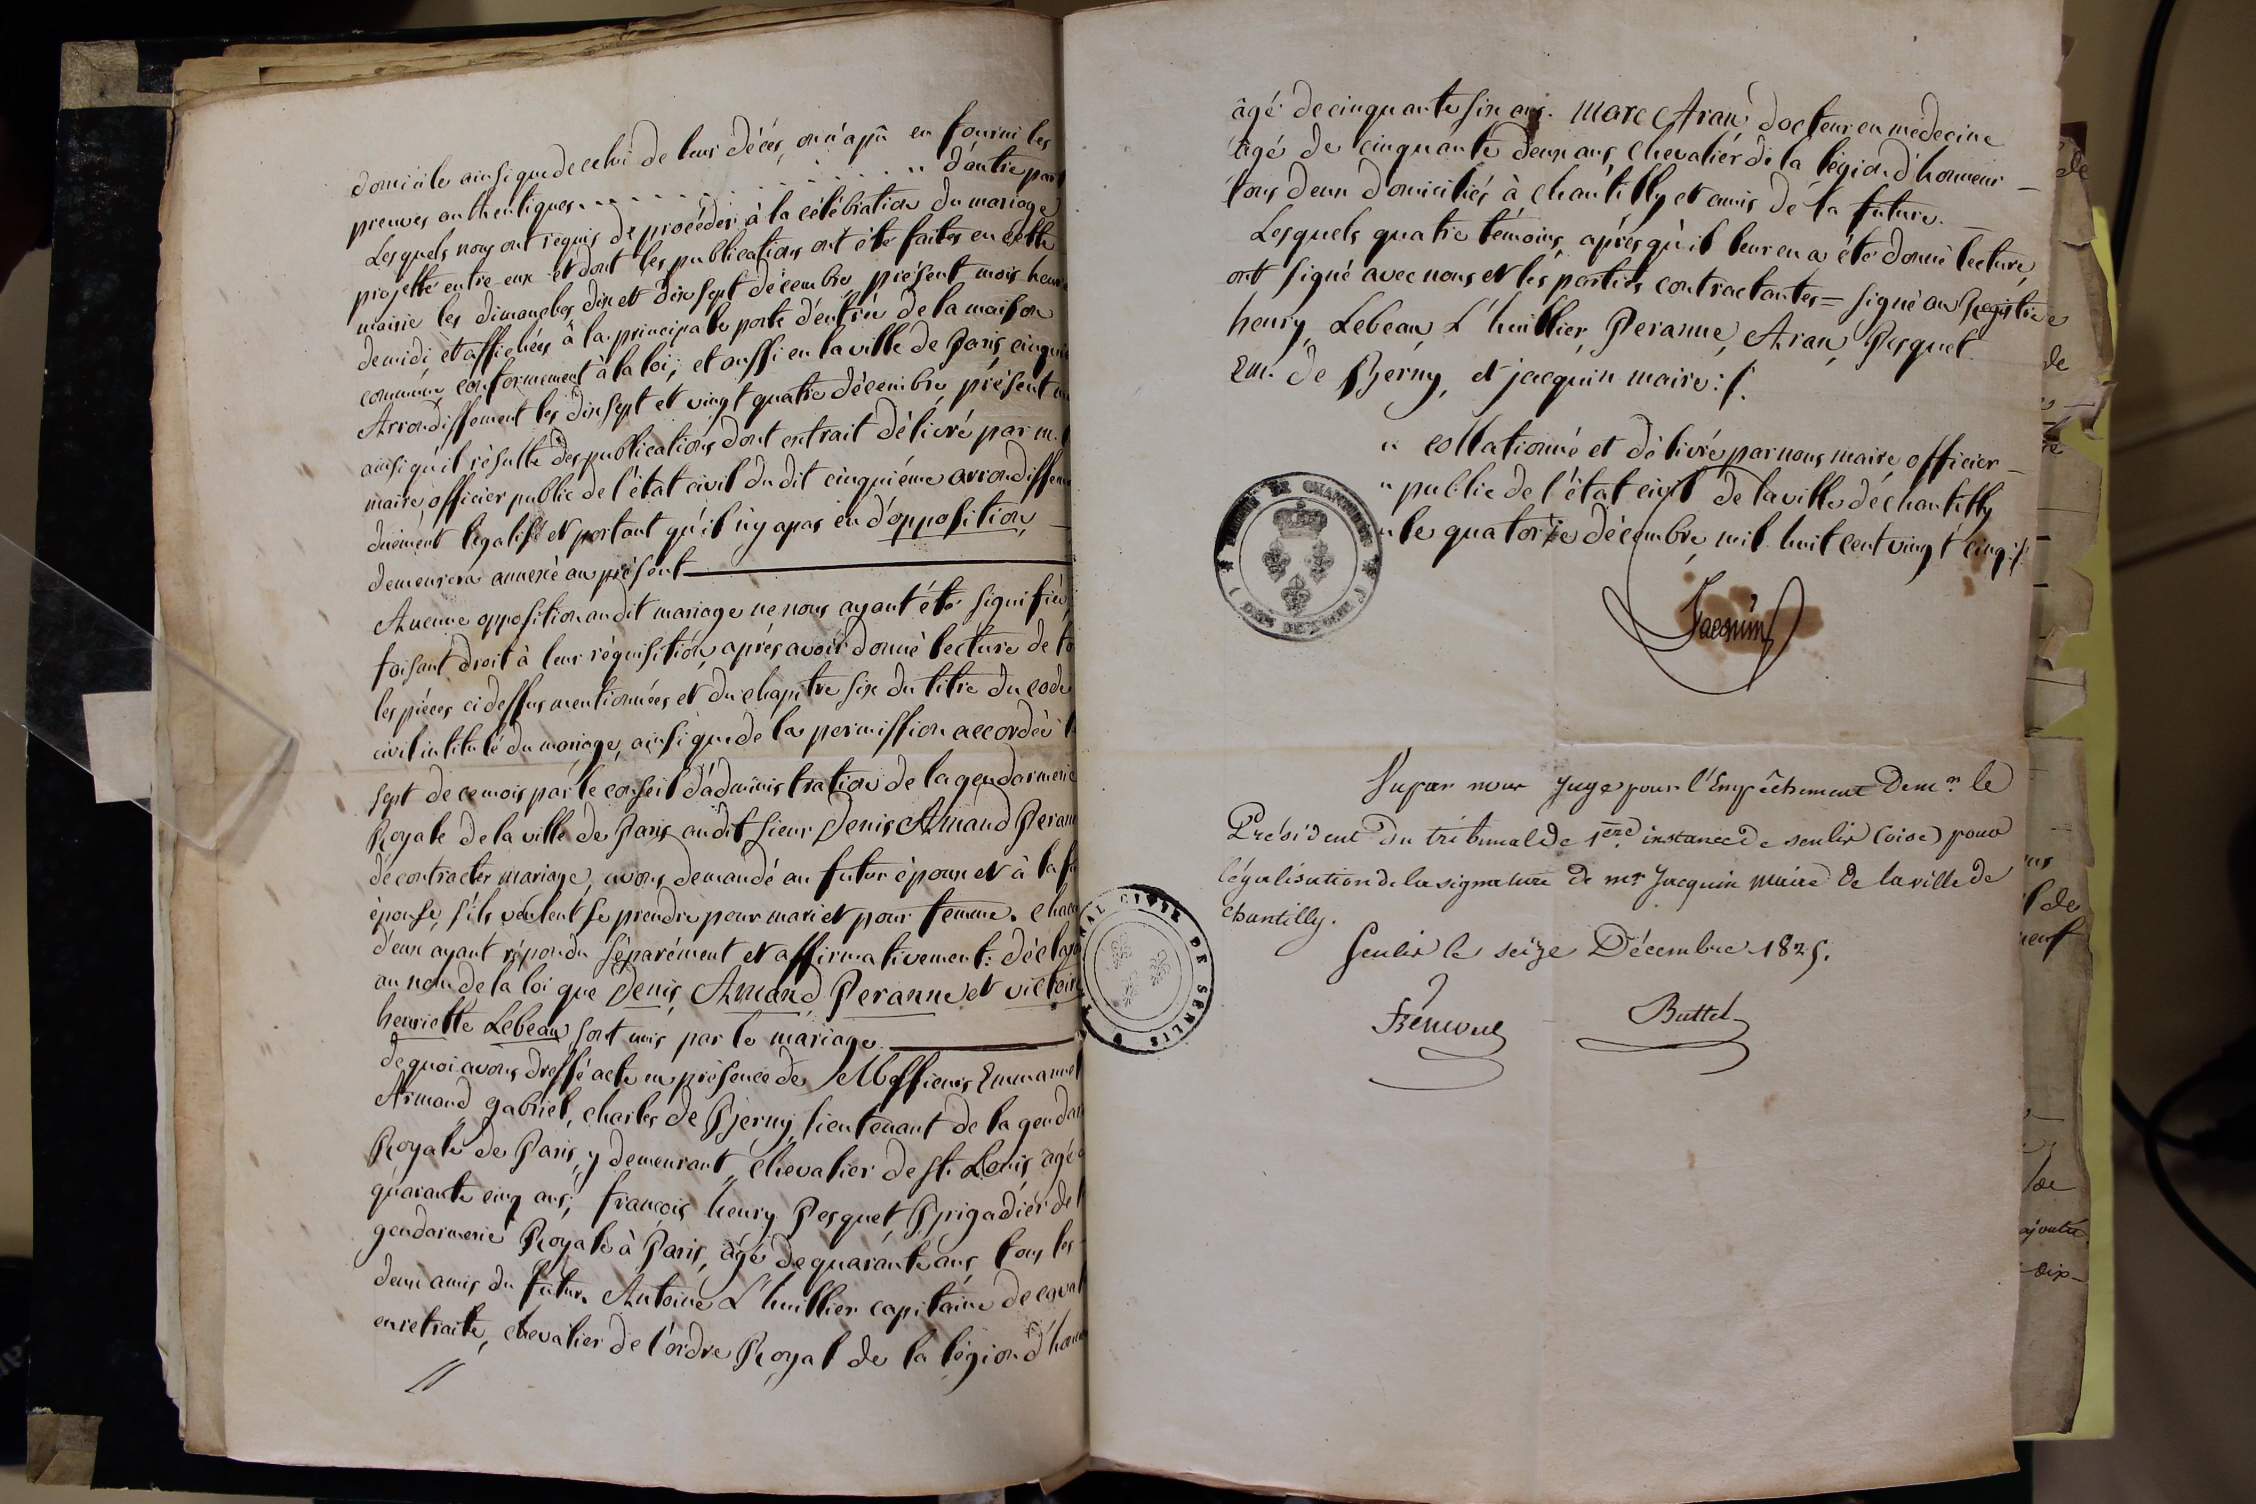 domicile ainsi que de celui de leurs décès, on n'a pû en fournir les
preuves authentiques. . . . . . . . . . . . . . . . . " d'autre part
Lesquels nous ont requis de procéder à la célébration du mariage
projetté entre eux et dont les publications ont été faites en cette
mairie les dimanches dix et dix sept décembre présent mois heure
de midi et affichées à la principale porte d'entrée de la maison
commune conformement à la loi; et aussi en la ville de Paris,
Arrondissement les dix sept et vingt quatre décembre, présent
ainsi qu'il résulte des publications dont extrait délivré par m.
maire, officier public de l'état civil du dit cinquième arrondissem
duement légalisé et portant qu'il n'y a pas eu d'opposition,
demeurera annexé au présent
Aucune opposition au dit mariage ne nous ayant été signifiée,
faisant droit à leur réquisition, après avoir donné lecture de
les pièces ci dessus mentionnées et du chapitre six du titre du code
civil intitulé du mariage, ainsi que de la permission accordée
sept de ce mois par le conseil d'administration de la gendarmerie
Royale de la ville de Paris au dit sieur Denis Armand Perann
de contracter mariage, avons demandé au futur époux et à la fu
épouse, s'ils veulent se prendre pour mari et pour femme. chacu
d'eux ayant répondu séparément et affirmativement: déclar
au nom de la loi que Denis, Armand, Peranne et victoir
henriette Lebeau, sont unis par le mariage.
de quoi avons dressé acte en présence de Messieurs Emmanuel
Armand, gabriel, charles de Bjerny, lieutenant de la gendar
Royale de Paris, y demeurant, chevalier de St. Louis, âgé
quarante cinq ans; françois henry Pesquet, Brigadier de l
gendarmerie Royale à Paris, âgé de quarante ans, tous les
deux amis du futur. Antoine L'huillier capitaine de caval
en retraite, chevalier de l'ordre Royal de la légion d'hon
âgé de cinquante six ans. Marc Aran, docteur en médecine
âgé de cinquante deux ans, chevalier de la légion d'honneur
tous deux domiciliés à chantilly et amis de la future.
Lesquels quatre témoins, après qu'il leur en a été donné lecture,
ont signé avec nous et les parties contractantes = signé au Registre
henry, Lebeau, L'huillier, Peranne, Aran, Pesquet
Em. de Bjerny, et jacquin maire ./.
" collationné et délivré par nous maire, officier
" public de l'état civil de la ville de chantilly
" le quatorze décembre, mil huit cent vingt cinq ./.
DE CHANTILLY
Jacquin
Vu par nous Juge pour l'Empêchement de mr. le
Président du tribunal de 1ere instance de senlis (oise) pour
légalisation de la signature de mr Jacquin Maire de la ville de
chantilly.
Senlis le seize Décembre 1825.
Buttel
AL CIVIL DE SENLIS